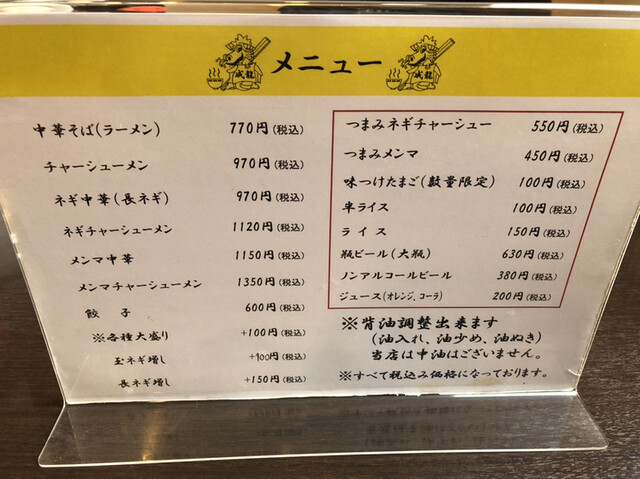 メニュー
成龍
成龍
中華そば(ラーメン) 770円(税込)
チャーシューメン 970円(税込)
ネギ中華(長ネギ) 970円(税込)
ネギチャーシューメン 1120円(税込)
メンマ中華 1150円(税込)
メンマチャーシューメン 1350円(税込)
餃子 600円(税込)
※各種大盛り +100円(税込)
玉ネギ増し +100円(税込)
長ネギ増し +150円(税込)
つまみネギチャーシュー 550円(税込)
つまみメンマ 450円(税込)
味つけたまご(数量限定) 100円(税込)
半ライス 100円(税込)
ライス 150円(税込)
瓶ビール(大瓶) 630円(税込)
ノンアルコールビール 380円(税込)
ジュース(オレンジ、コーラ) 200円(税込)
※背油調整出来ます
(油入れ、油少め、油ぬき)
当店は中油はございません。
※すべて税込み価格になっております。